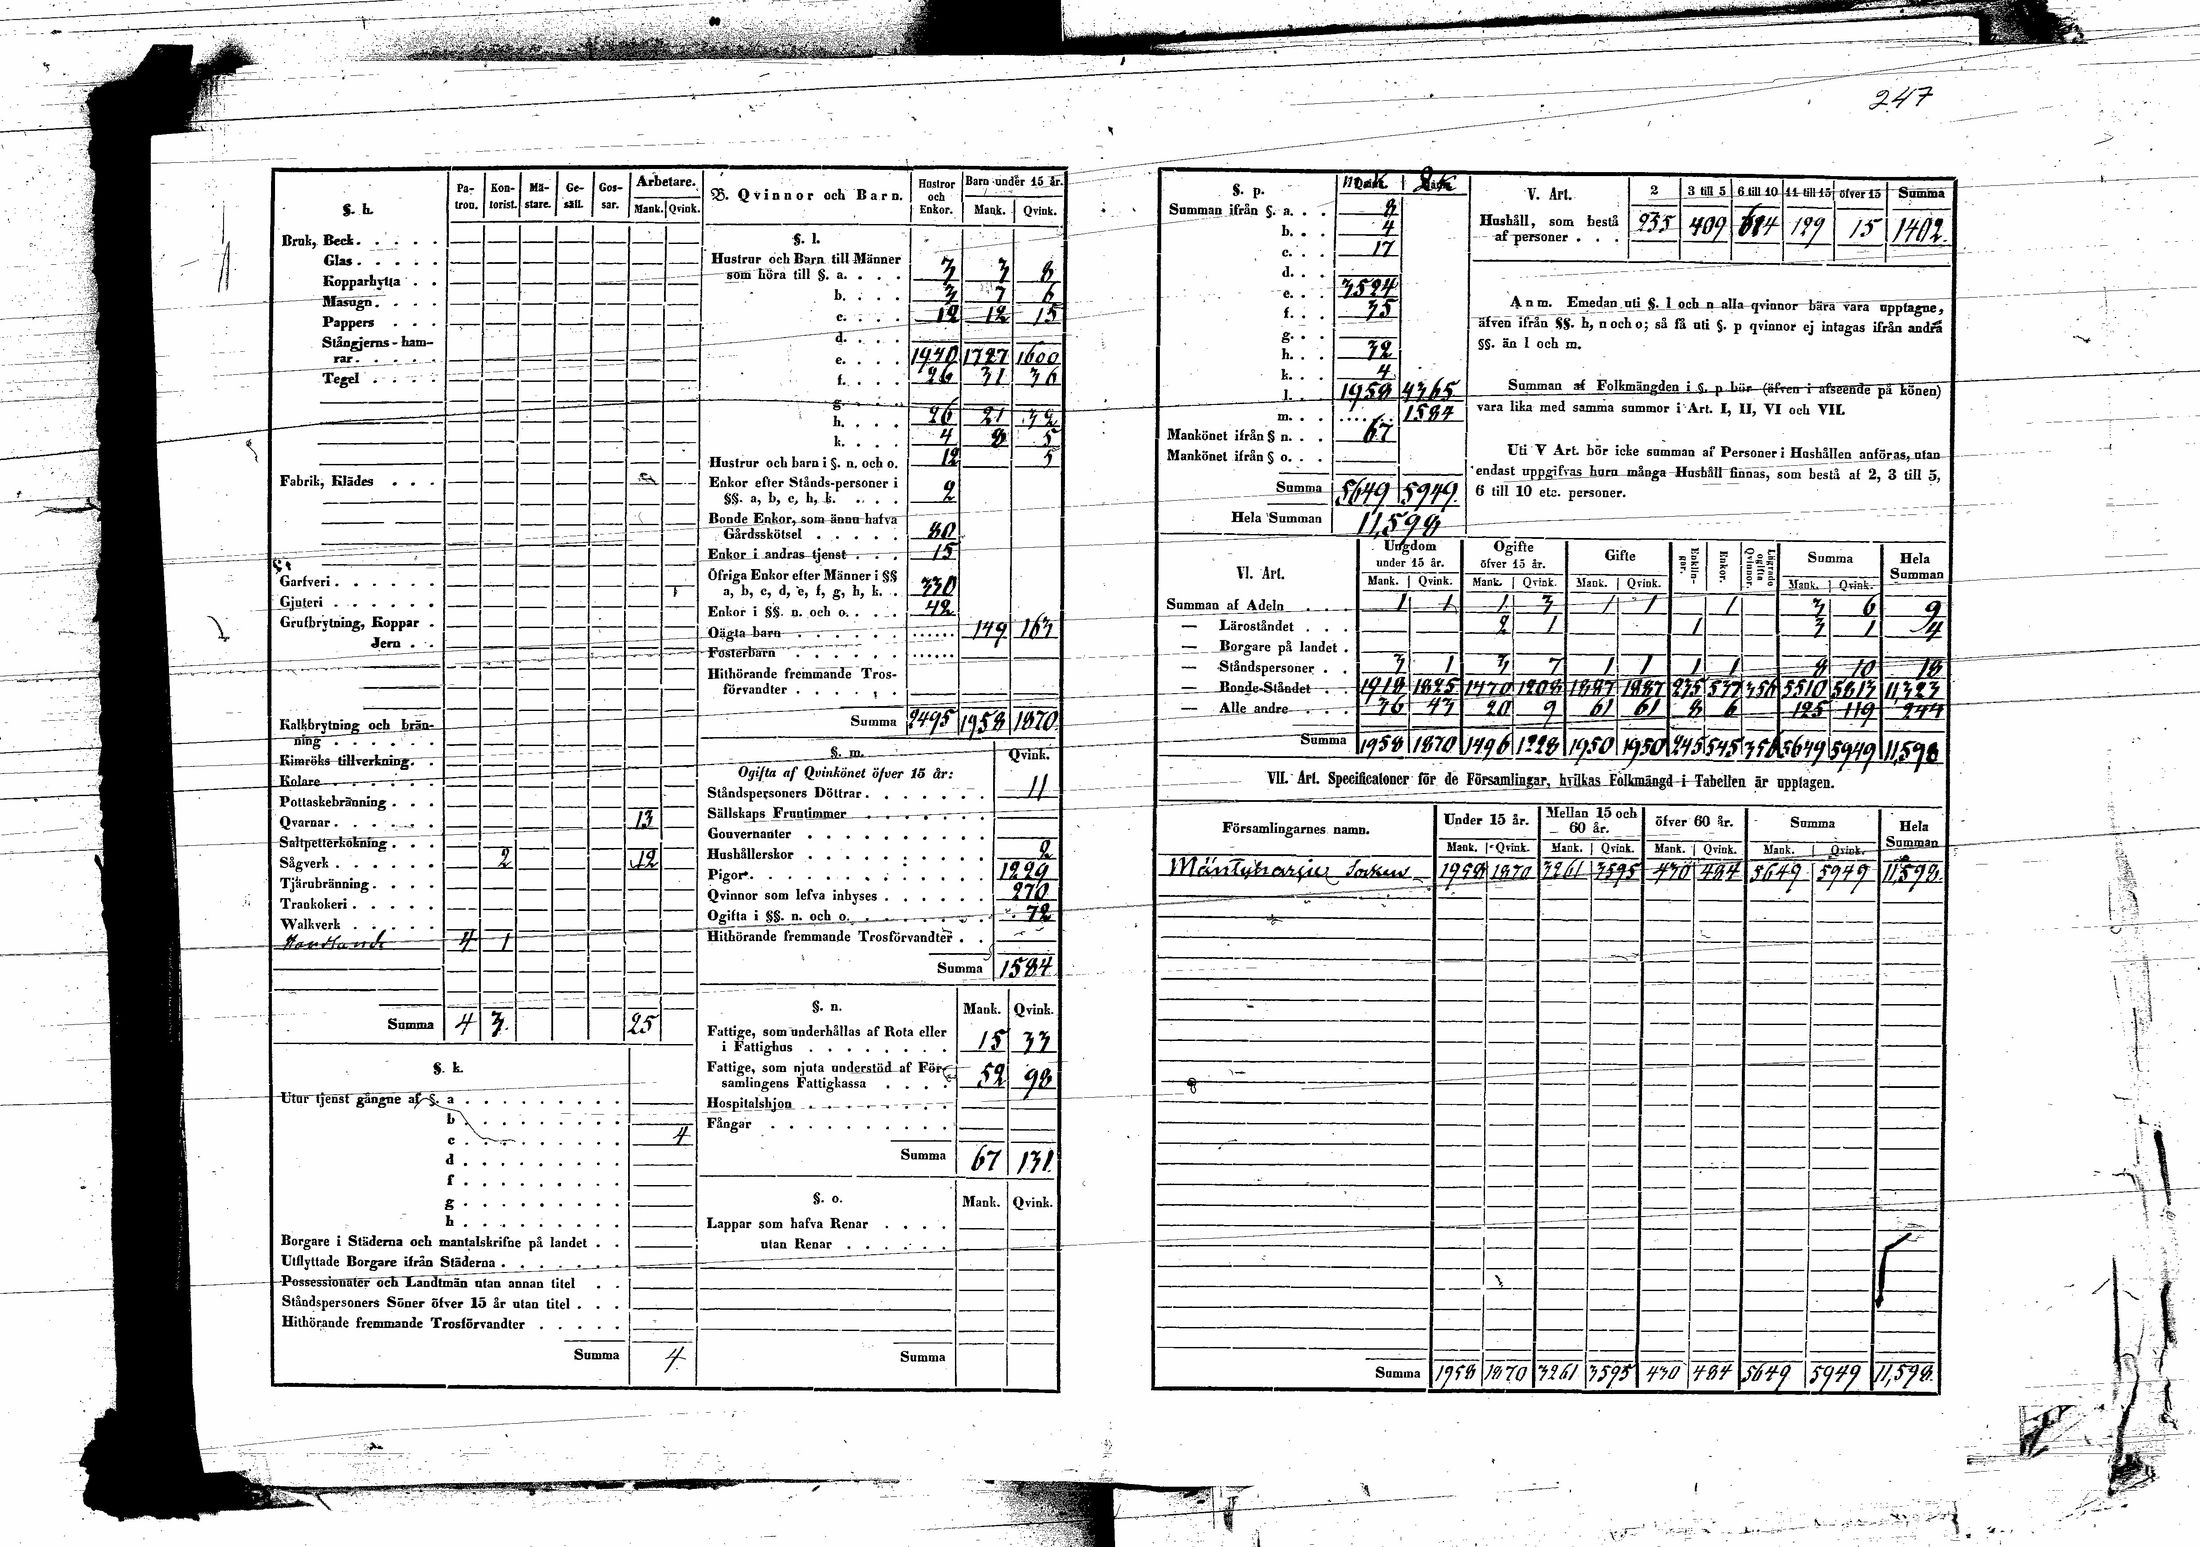 247
§. h. Pa- Kon- Mä- Ge- Gos- Arbetare.
tron. torist. stare. säll. sar. Mank. Qvink.
Bruk, Beck
Glas
Kopparhytta
Masugn
Pappers
Stångjerns-ham-
rar
Tegel
Fabrik, Klädes
Garfveri
Gjuteri
Grufbrytning, Koppar
Jern
Kalkbrytning och brän-
ning
Kimröks tillverkning
Kolare
Pottaskebränning
Qvarnar 13
Saltpetterkokning
Sågverk 2 12
Tjärubränning
Trankokeri
Walkverk
Handlande 4 1
Summa 4 3 25
§. k.
Utur tjenst gångne af §. a
b
c 4
d
f
g
h
Borgare i Städerna och mantalskrifne på landet
Utflyttade Borgare ifrån Städerna
Possessionater och Landtmän utan annan titel
Ståndspersoners Söner öfver 15 år utan titel
Hithörande fremmande Trosförvandter
Summa 4
B. Qvinnor och Barn. Hustror och Enkor. Barn under 15 år.
Mank. Qvink.
§. l.
Hustrur och Barn till Männer
som höra till §. a. 3 3 8
b. 3 7 6
c. 12 12 15
d.
e. 1940 1727 1600
f. 26 31 36
g.
h. 26 21 32
k. 4 8 5
Hustrur och barn i §. n. och o. 12 5
Enkor efter Stånds-personer i
§§. a, b, c, h, k. 2
Bonde Enkor, som ännu hafva
Gårdsskötsel 80
Enkor i andras tjenst 15
Öfriga Enkor efter Männer i §§
a, b, c, d, e, f, g, h, k. 330
Enkor i §§. n. och o. 42
Oägta barn 149 163
Fosterbarn
Hithörande fremmande Tros-
förvandter
Summa 2495 1958 1870
§. m. Qvink.
Ogifta af Qvinkönet öfver 15 år:
Ståndspersoners Döttrar 11
Sällskaps Fruntimmer
Gouvernanter
Hushållerskor 2
Pigor 1229
Qvinnor som lefva inhyses 270
Ogifta i §§. n. och o. 72
Hithörande fremmande Trosförvandter
Summa 1584
§. n. Mank. Qvink.
Fattige, som underhållas af Rota eller
i Fattighus 15 33
Fattige, som njuta understöd af För-
samlingens Fattigkassa 52 98
Hospitalshjon
Fångar
Summa 67 131
§. o. Mank. Qvink.
Lappar som hafva Renar
utan Renar
Summa
§. p.
Summan ifrån §. a. 8
b. 4
c. 17
d.
e. 3524
f. 35
g.
h. 32
k. 4
l. 1958 4365
m. 1584
Mankönet ifrån § n. 67
Mankönet ifrån § o.
Summa 5649 5949
Hela Summan 11,598
V. Art. 2 3 till 5 6 till 10 11 till 15 öfver 15 Summa
Hushåll, som bestå
af personer 235 409 129 15 1402
Anm. Emedan uti §. l och n alla qvinnor bära vara upptagne,
äfven ifrån §§. h, n och o; så få uti §. p qvinnor ej intagas ifrån andra
§§. än l och m.
Summan af Folkmängden i §. p bör (äfven i afseende på könen)
vara lika med samma summor i Art. I, II, VI och VII.
Uti V Art. bör icke summan af Personer i Hushållen anföras, utan
endast uppgifvas huru många Hushåll finnas, som bestå af 2, 3 till 5,
6 till 10 etc. personer.
VI. Art. Ungdom under 15 år. Ogifte öfver 15 år. Gifte Enklin-gar. Enkor. Lägrade ogifta Qvinnor. Summa Hela Summan
Mank. Qvink. Mank. Qvink. Mank. Qvink. Mank. Qvink.
Summan af Adeln 1 1 1 3 1 1 1 3 6 9
— Läroståndet 2 1 1 3 1 4
— Borgare på landet
— Ståndspersoner 3 1 3 7 1 1 1 1 8 10 18
— Bonde-Ståndet 1918 1825 1470 1208 1887 1887 235 537 356 5510 5813 11,323
— Alle andre 36 43 20 9 61 61 8 6 125 119 244
Summa 1958 1870 1496 1228 1950 1950 245 545 356 5649 5949 11,598
VII. Art. Specificatoner för de Församlingar, hvilkas Folkmängd i Tabellen är upptagen.
Församlingarnes namn. Under 15 år. Mellan 15 och 60 år. öfver 60 år. Summa Hela Summan
Mank. Qvink. Mank. Qvink. Mank. Qvink. Mank. Qvink.
Mäntyharju Socken 1958 1870 3261 3595 430 484 5649 5949 11,598
Summa 1958 1870 3261 3595 430 484 5649 5949 11,598